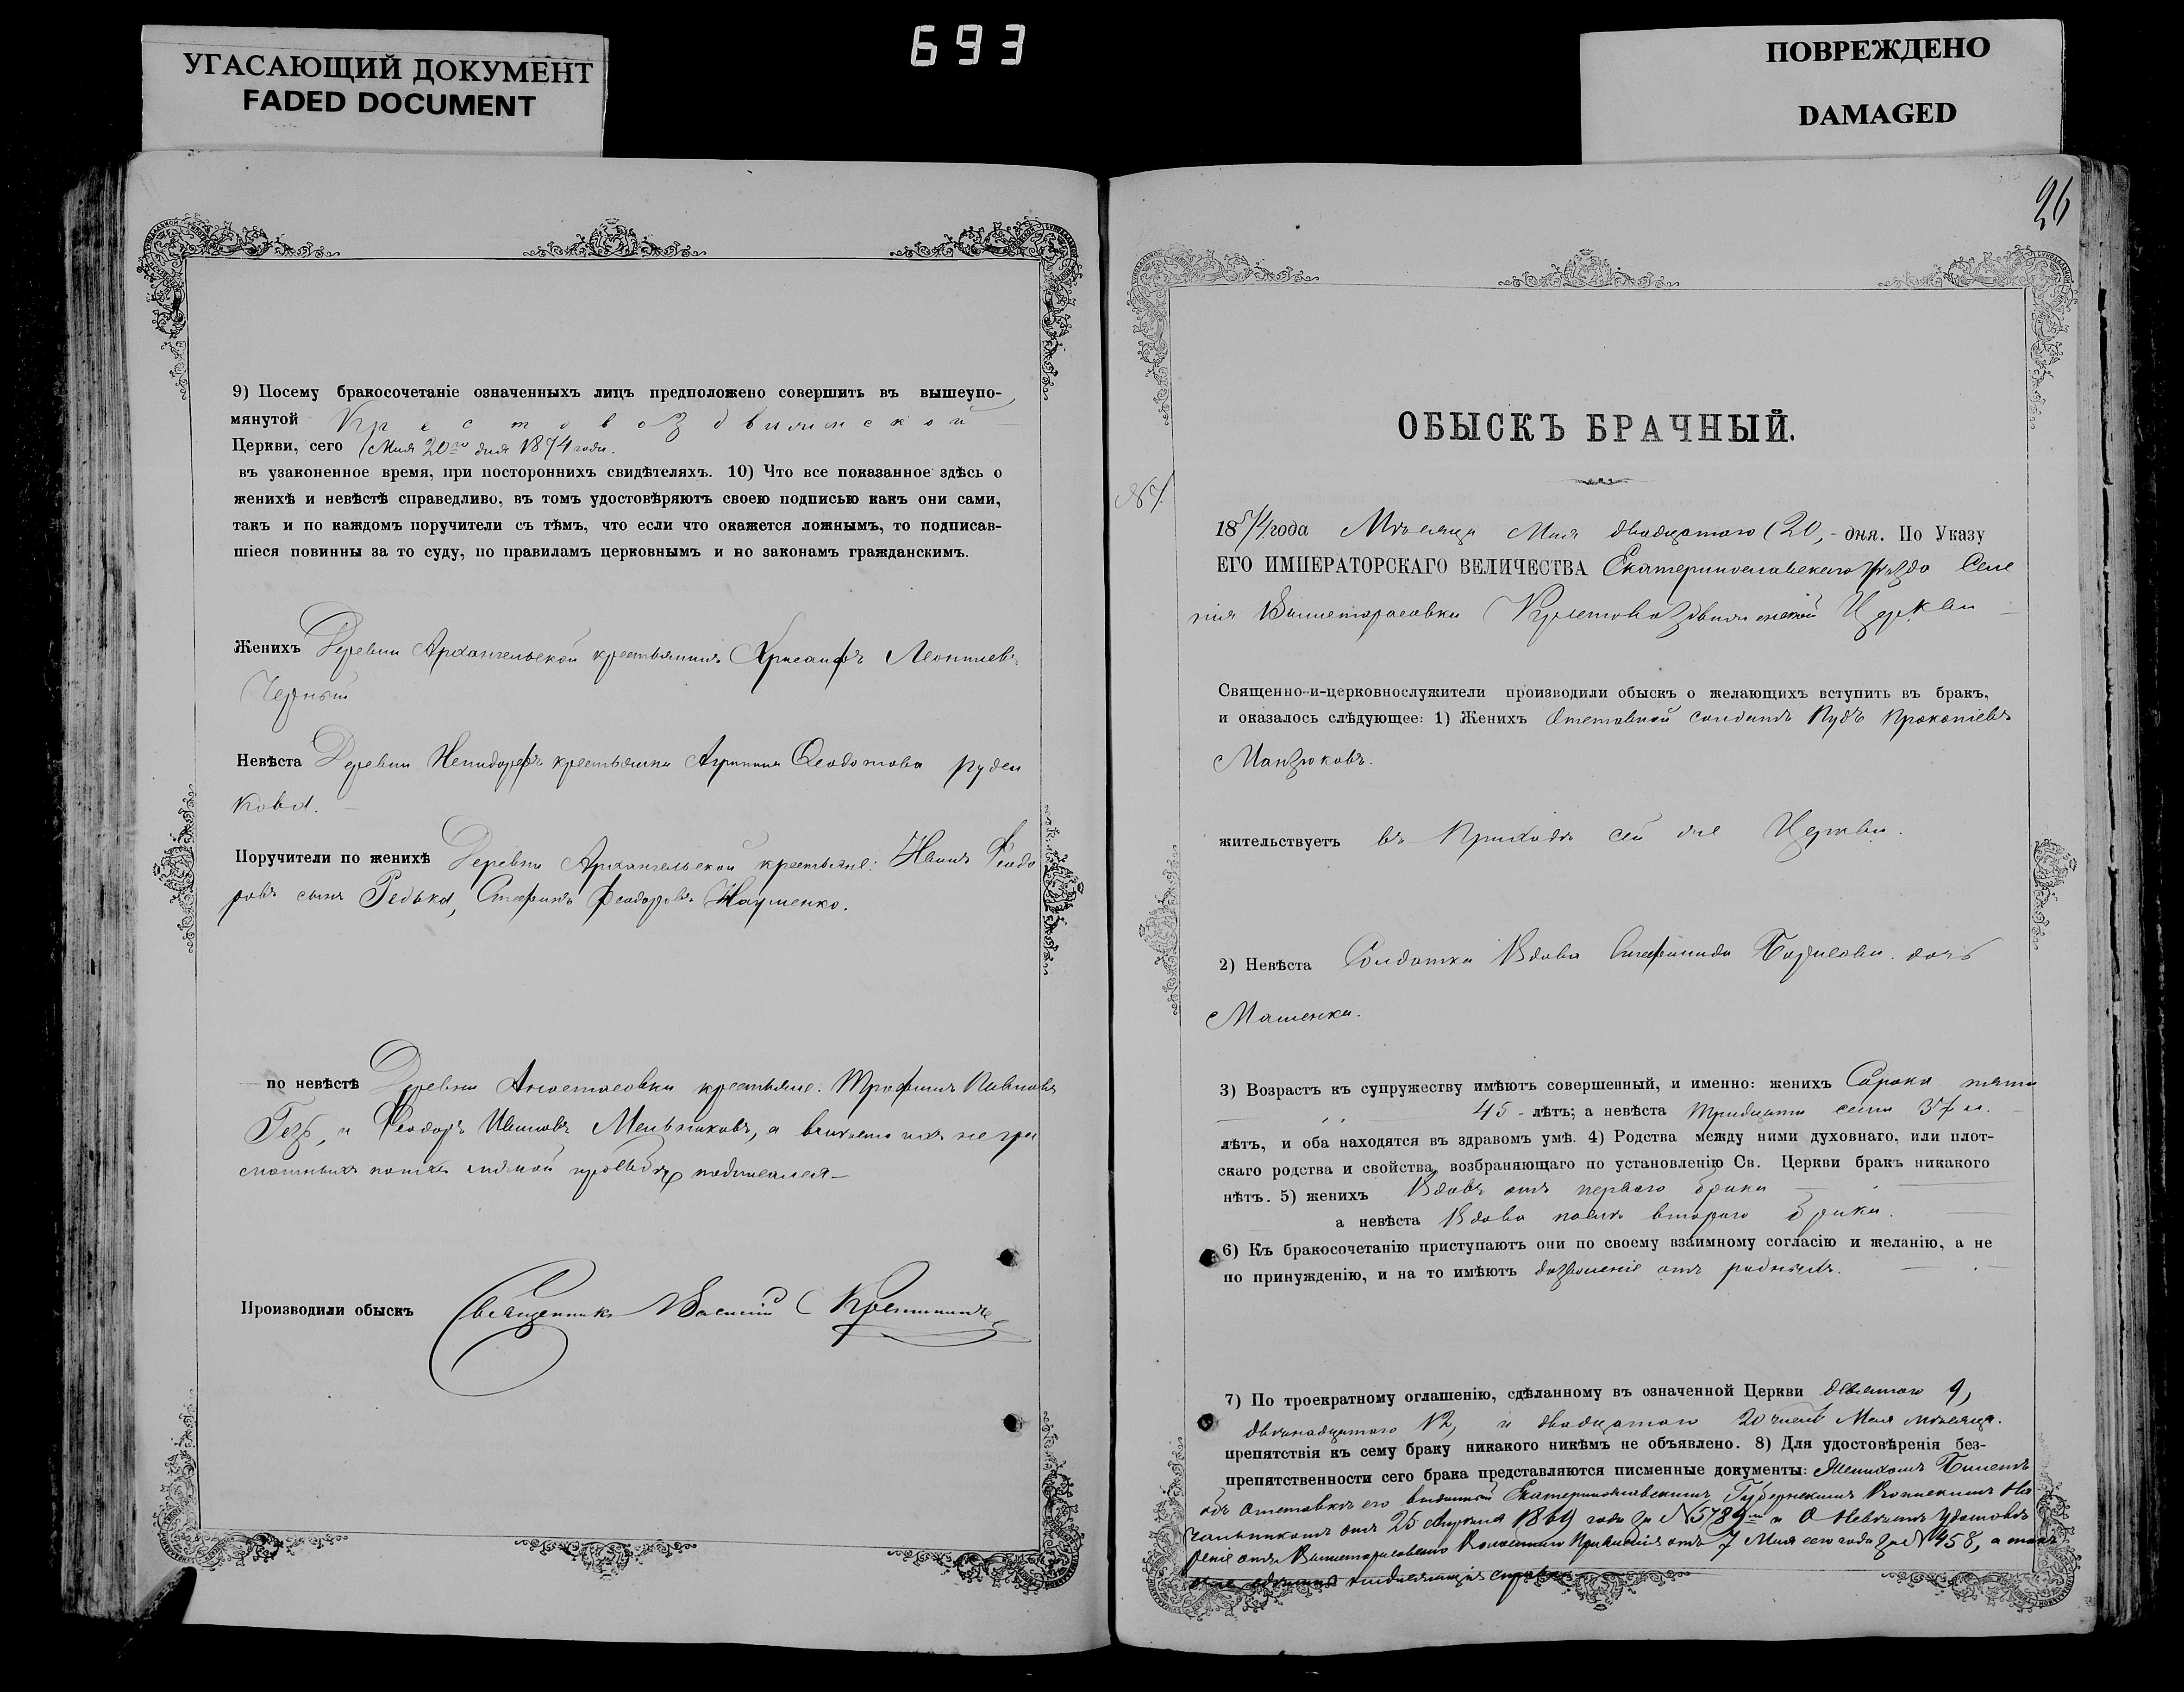 УГАСАЮЩИЙ ДОКУМЕНТ
FADED DOCUMENT
693
ПОВРЕЖДЕНО
DAMAGED
9) Посему бракосочетаніе означенныхъ лицъ предположено совершить въ вышеупо-
мянутой Крестовоздвиженской
Церкви, сего Мая 20го дня 1874 года.
въ узаконенное время, при постороннихъ свидѣтеляхъ. 10) Что все показанное здѣсь о
женихѣ и невѣстѣ справедливо, въ томъ удостовѣряютъ своею подписью какъ они сами,
такъ и по каждомъ поручители съ тѣмъ, что если что окажется ложнымъ, то подписав-
шіеся повинны за то суду, по правиламъ церковнымъ и по законамъ гражданскимъ.
Женихъ Деревни Архангельской крестьянинъ Хрисанфъ Леонтіевъ
Черный
Невѣста Деревни крестьянка Агрипина Ѳеодотова Руден
кова.
Поручители по женихѣ Деревни Архангельской крестьяне: Иванъ Феодо
ровъ сынъ Редька, Стефанъ Феодоровъ Науменко.
по невѣстѣ Деревни Анастасовки крестьяне: Трофимъ Павловъ
и Феодоръ Ивановъ Мельниковъ, а вмѣсто ихъ негра
мотныхъ по ихъ личной прозьбѣ подписался
Производили обыскъ Священникъ Василій
26
ОБЫСКЪ БРАЧНЫЙ.
№ 7.
1874 года Мѣсяца Мая двадцатого (20, дня. По Указу
ЕГО ИМПЕРАТОРСКАГО ВЕЛИЧЕСТВА Екатеринославскаго уѣзда Селе
нія Вышетарасовки Крестовоздвиженской Церкви
Священно-и-церковнослужители производили обыскъ о желающихъ вступить въ бракъ,
и оказалось слѣдующее: 1) Женихъ Отставной солдатъ Иудъ Прокопіевъ
Манзюковъ.
жительствуетъ въ Приходѣ сей же Церкви.
2) Невѣста Солдатка Вдова Стефанида Борисова дочь
Машенка.
3) Возрастъ къ супружеству имѣютъ совершенный, и именно: женихъ Сорока пяти
45 - лѣтъ; а невѣста Тридцати семи 37 м.
лѣтъ, и оба находятся въ здравомъ умѣ. 4) Родства между ними духовнаго, или плот-
скаго родства и свойства, возбраняющаго по установленію Св. Церкви бракъ никакого
нѣтъ. 5) женихъ Вдовъ отъ перваго брака
а невѣста Вдова послѣ второго брака.
6) Къ бракосочетанію приступаютъ они по своему взаимному согласію и желанію, а не
по принужденію, и на то имѣютъ дозволеніе отъ родныхъ.
7) По троекратному оглашенію, сдѣланному въ означенной Церкви девятого 9,
двѣнадцатого 12, и двадцатого 20 чиселъ Мая мѣсяца.
препятствія къ сему браку никакого никѣмъ не объявлено. 8) Для удостовѣренія без-
препятственности сего брака представляются писменные документы: Женихомъ Билетъ
объ отставкѣ его выданный Екатеринославскимъ Губернскимъ Воинскимъ На
чальникомъ отъ 25 Апрѣля 1869 года за № 5789 и о Невѣстѣ Удостовѣ
реніе отъ Вышетарасовскаго Волостнаго Правленія отъ 7 Мая сего года за № 458, а так